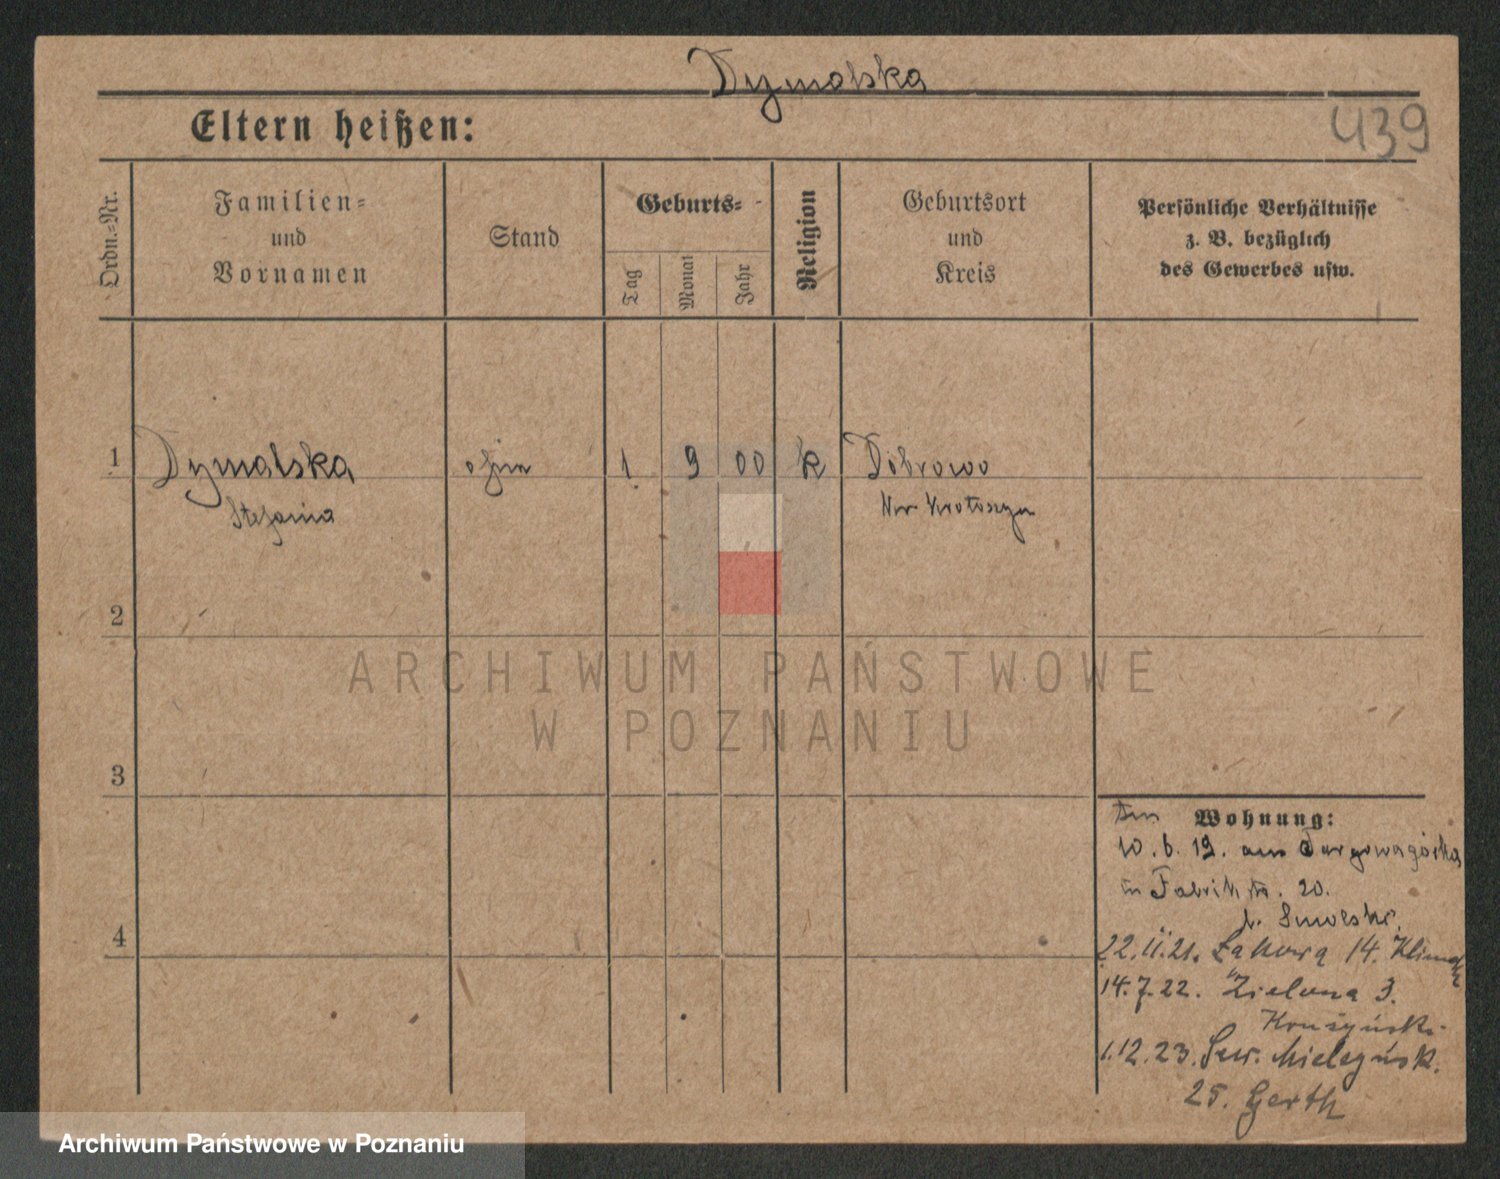 Dymalska
Eltern heißen:
439
Ordn.=Nr.
Familien=
und
Vornamen
Stand
Geburts=
Tag
Monat
Jahr
Religion
Geburtsort
und
Kreis
Persönliche Verhältnisse
z. B. bezüglich
des Gewerbes usw.
1 Dymalska 1 9 00 k Dobrowo
Stefania Krotoszyn
2
3
4
Wohnung:
10. 6. 19. aus Targowagórka
in Fabrikstr. 20.
b. Smolski.
22.11.21. Łąkowa 14. Klimek
14.7.22. Zielona 3.
1.12.23. Sew. Mielżyńsk.
25. Gerth
ARCHIWUM PAŃSTWOWE
W POZNANIU
Archiwum Państwowe w Poznaniu